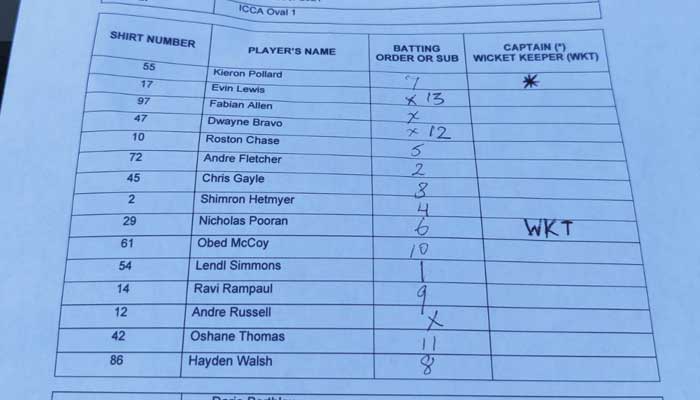 ICCA Oval 1
SHIRT NUMBER PLAYER'S NAME BATTING ORDER OR SUB CAPTAIN (*) WICKET KEEPER (WKT)
55 Kieron Pollard 7 *
17 Evin Lewis x 13
97 Fabian Allen x
47 Dwayne Bravo x 12
10 Roston Chase 5
72 Andre Fletcher 2
45 Chris Gayle 3
2 Shimron Hetmyer 4
29 Nicholas Pooran 6 WKT
61 Obed McCoy 10
54 Lendl Simmons 1
14 Ravi Rampaul 9
12 Andre Russell x
42 Oshane Thomas 11
86 Hayden Walsh 8